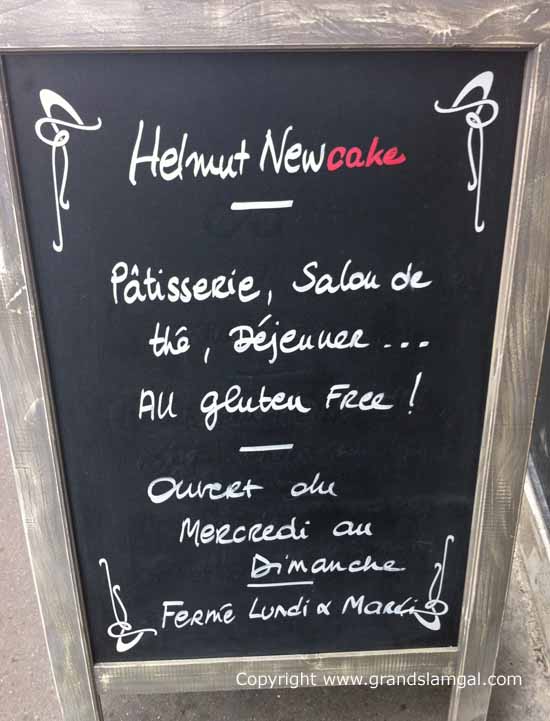 Helmut Newcake
Pâtisserie, Salon de
thé, Déjeuner ...
All gluten Free !
Ouvert du
Mercredi au
Dimanche
Fermé Lundi & Mardi
Copyright www.grandslamgal.com